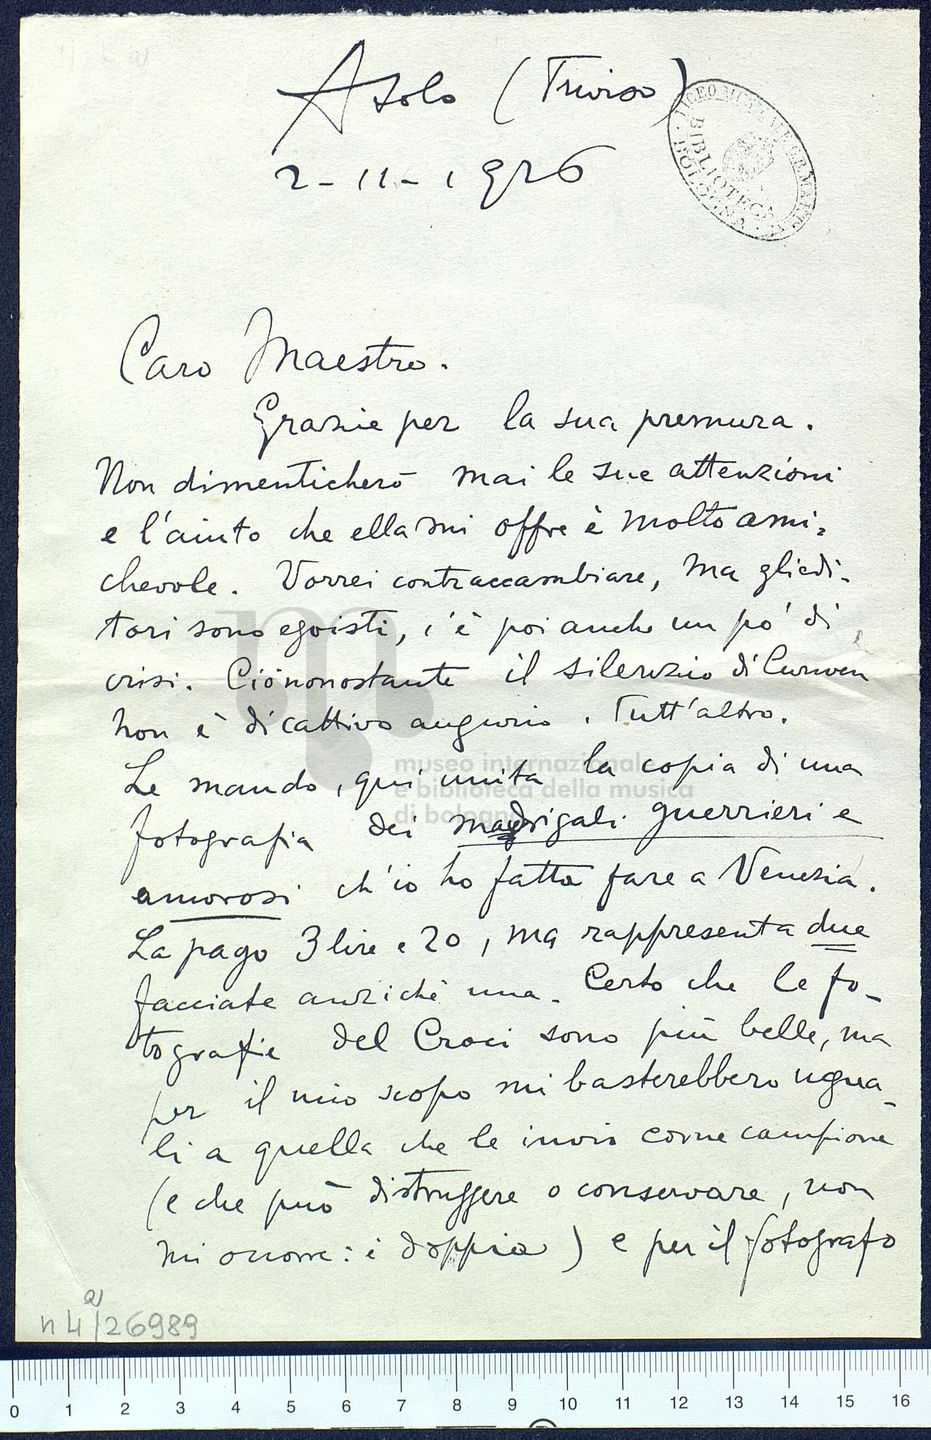 Asolo (Treviso)
2-11-1926
LICEO MUSICALE G.B. MARTINI
BIBLIOTECA
BOLOGNA
Caro Maestro.
Grazie per la sua premura.
Non dimenticherò mai le sue attenzioni
e l'aiuto che ella mi offre è molto ami=
chevole. Vorrei contraccambiare, ma gli edi-
tori sono egoisti, c'è poi anche un pó di
crisi. Ciònonostante il silenzio di Curwen
non è di cattivo augurio. Tutt'altro.
Le mando, qui unita la copia di una
fotografia dei madrigali guerrieri e
amorosi ch'io ho fatto fare a Venezia.
La pago 3 lire e 20, ma rappresenta due
facciate anziché una. Certo che le fo-
tografie del Croci sono più belle, ma
per il mio scopo mi basterebbero ugua-
li a quella che le invio come campione
(e che può distruggere o conservare, non
mi occorre: è doppia) e per il fotografo
museo internazionale
e biblioteca della musica
di bologna
n 4 a)/26989
0 1 2 3 4 5 6 7 8 9 10 11 12 13 14 15 16